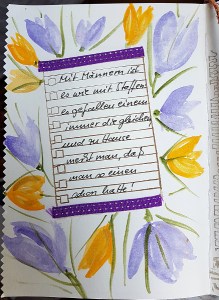 Mit Männern ist
es wie mit Stoffen
es gefallen einem
immer die gleichen
und zu Hause
merkt man, daß
man so einen
schon hatte!